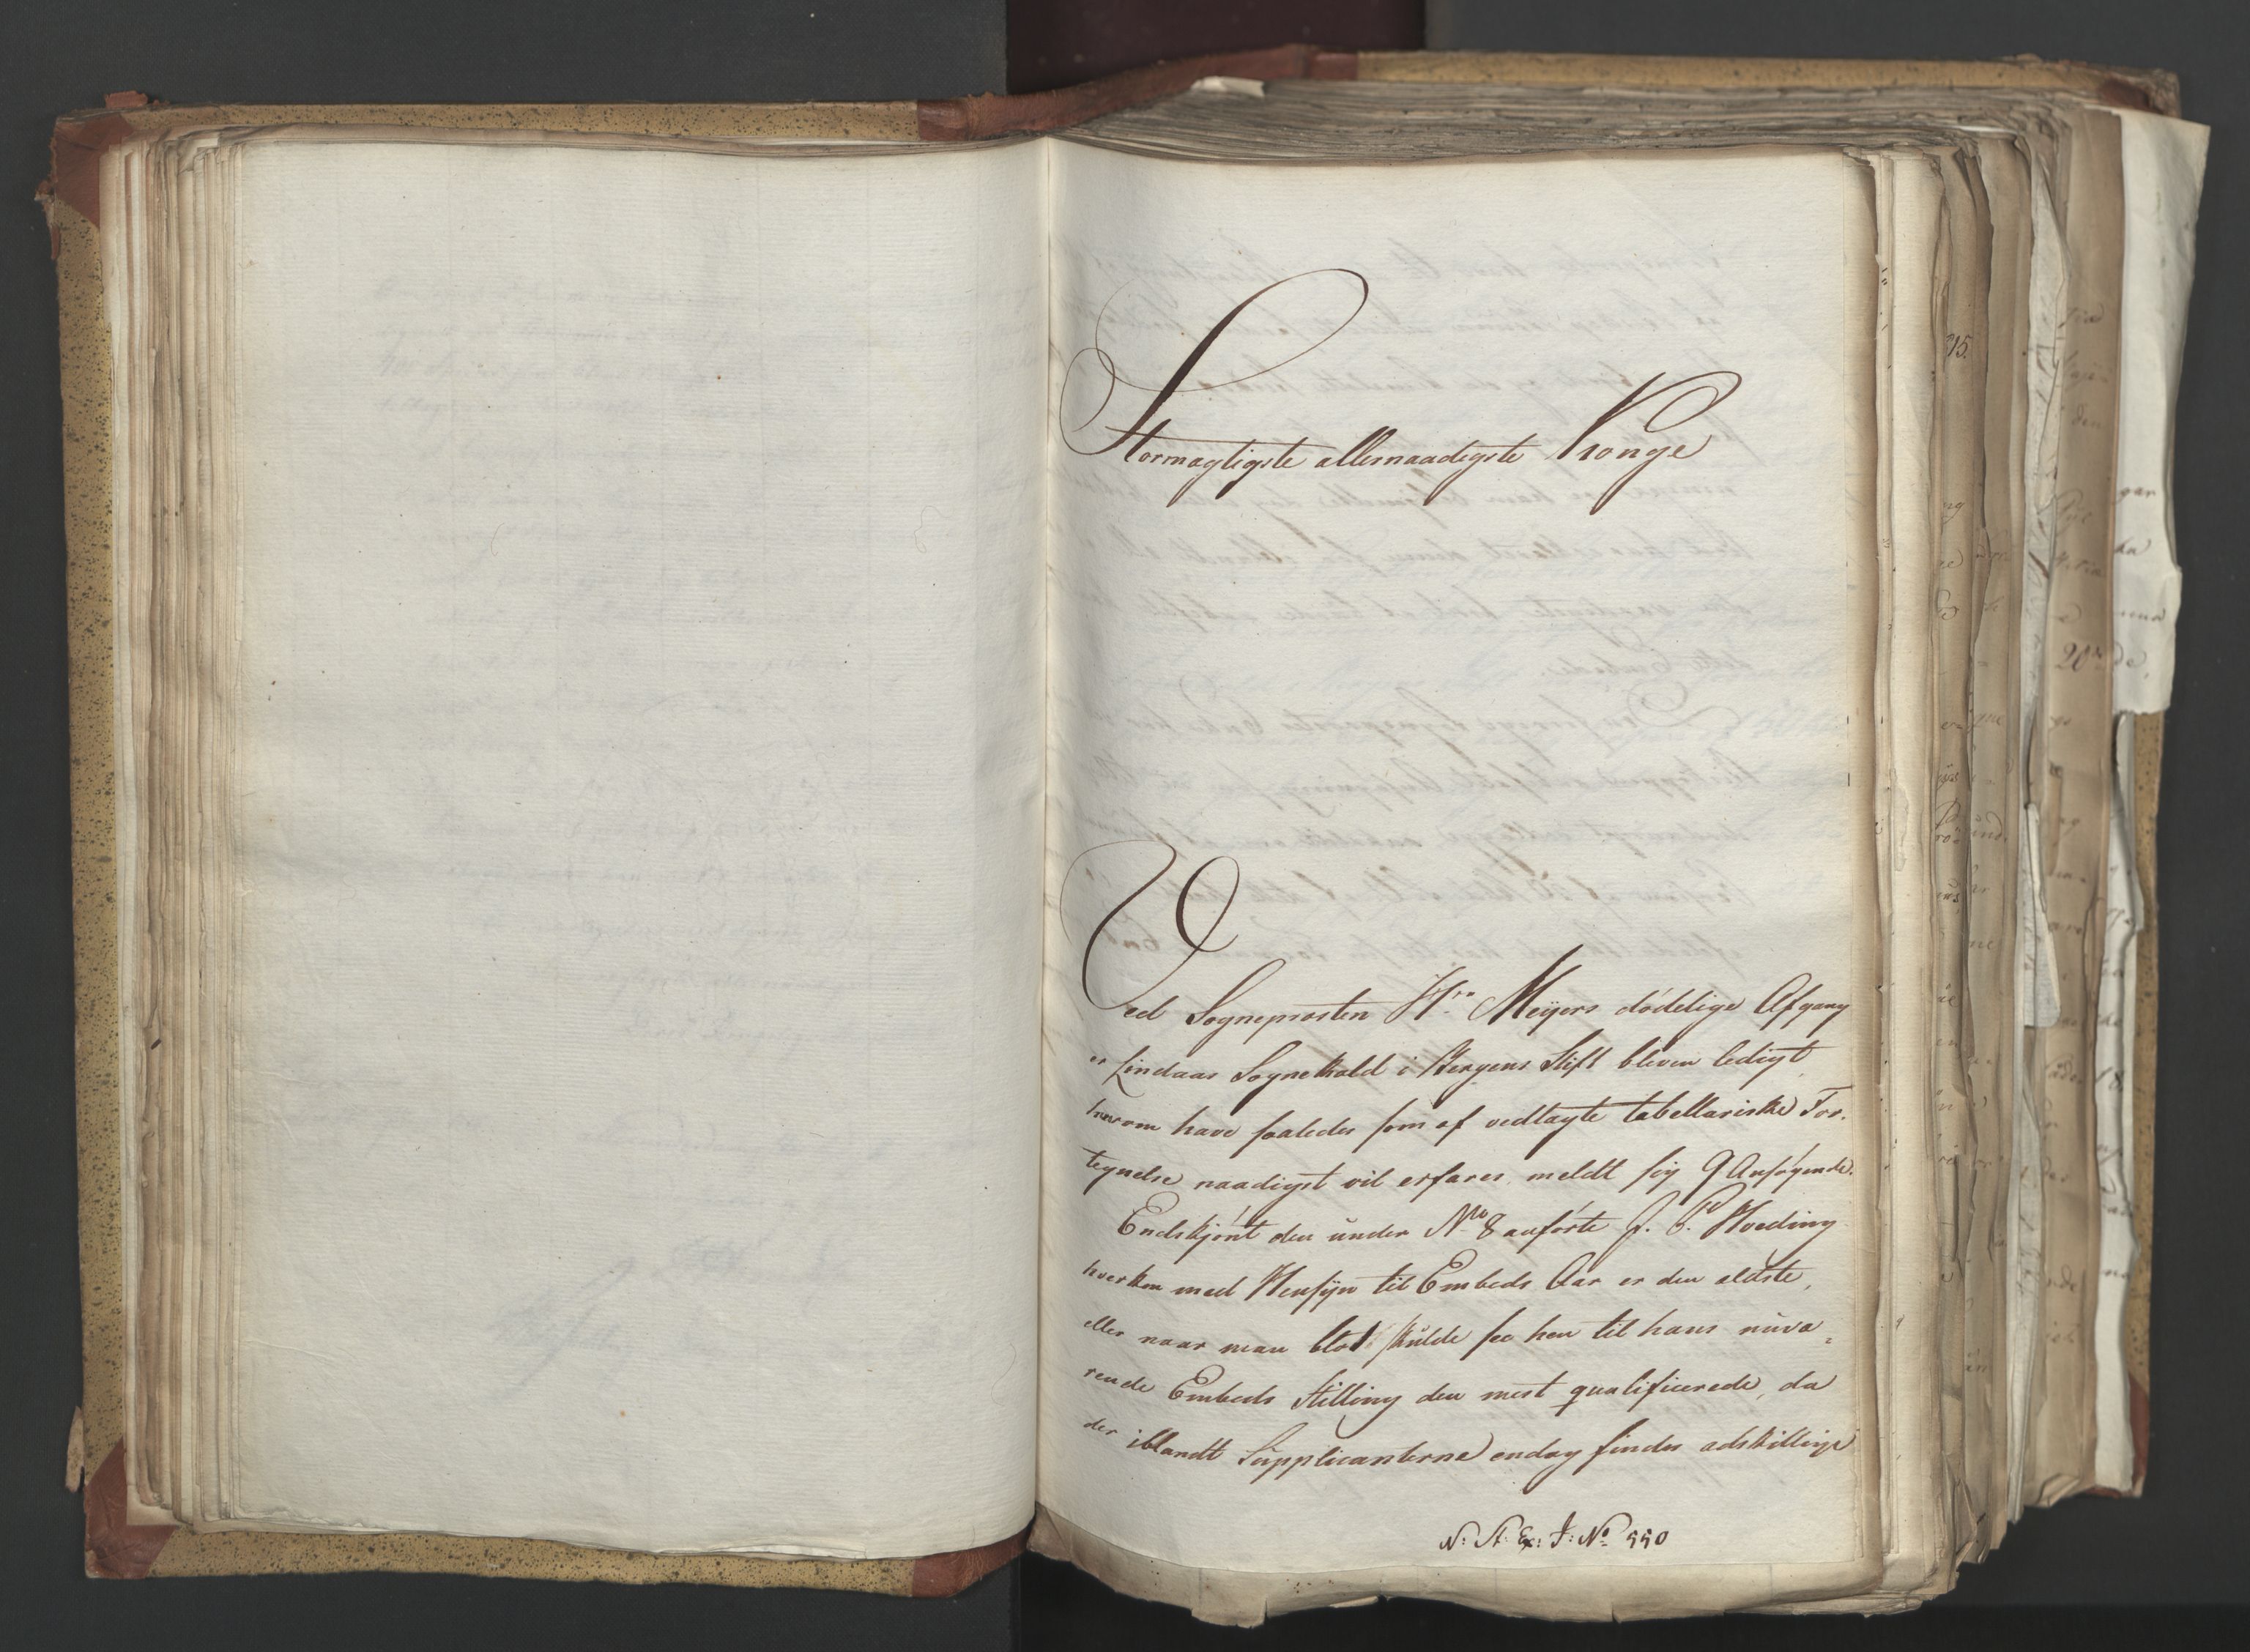 Stormægtigste allernaadigste Konge
Ved Sognepræsten Hr. Meyers dødelige Afgang
er Lindaas Sognekald i Bergens Stift bleven ledigt,
hvorom have saaledes som af vedlagte tabellariske For-
tegnelse naadigst vil erfares meldt sig 9 Ansøgende.
Endskjønt den under No 8 anførte J. C. Hoeding
hverken med Hensyn til Embeds Aar er den ældste,
eller naar man blot skulde see hen til hans nuvæ-
rende Embeds Stilling den mest qualificerede, da
der iblandt Supplicanterne endog findes adskillige
N: St: Ex: J: No 550